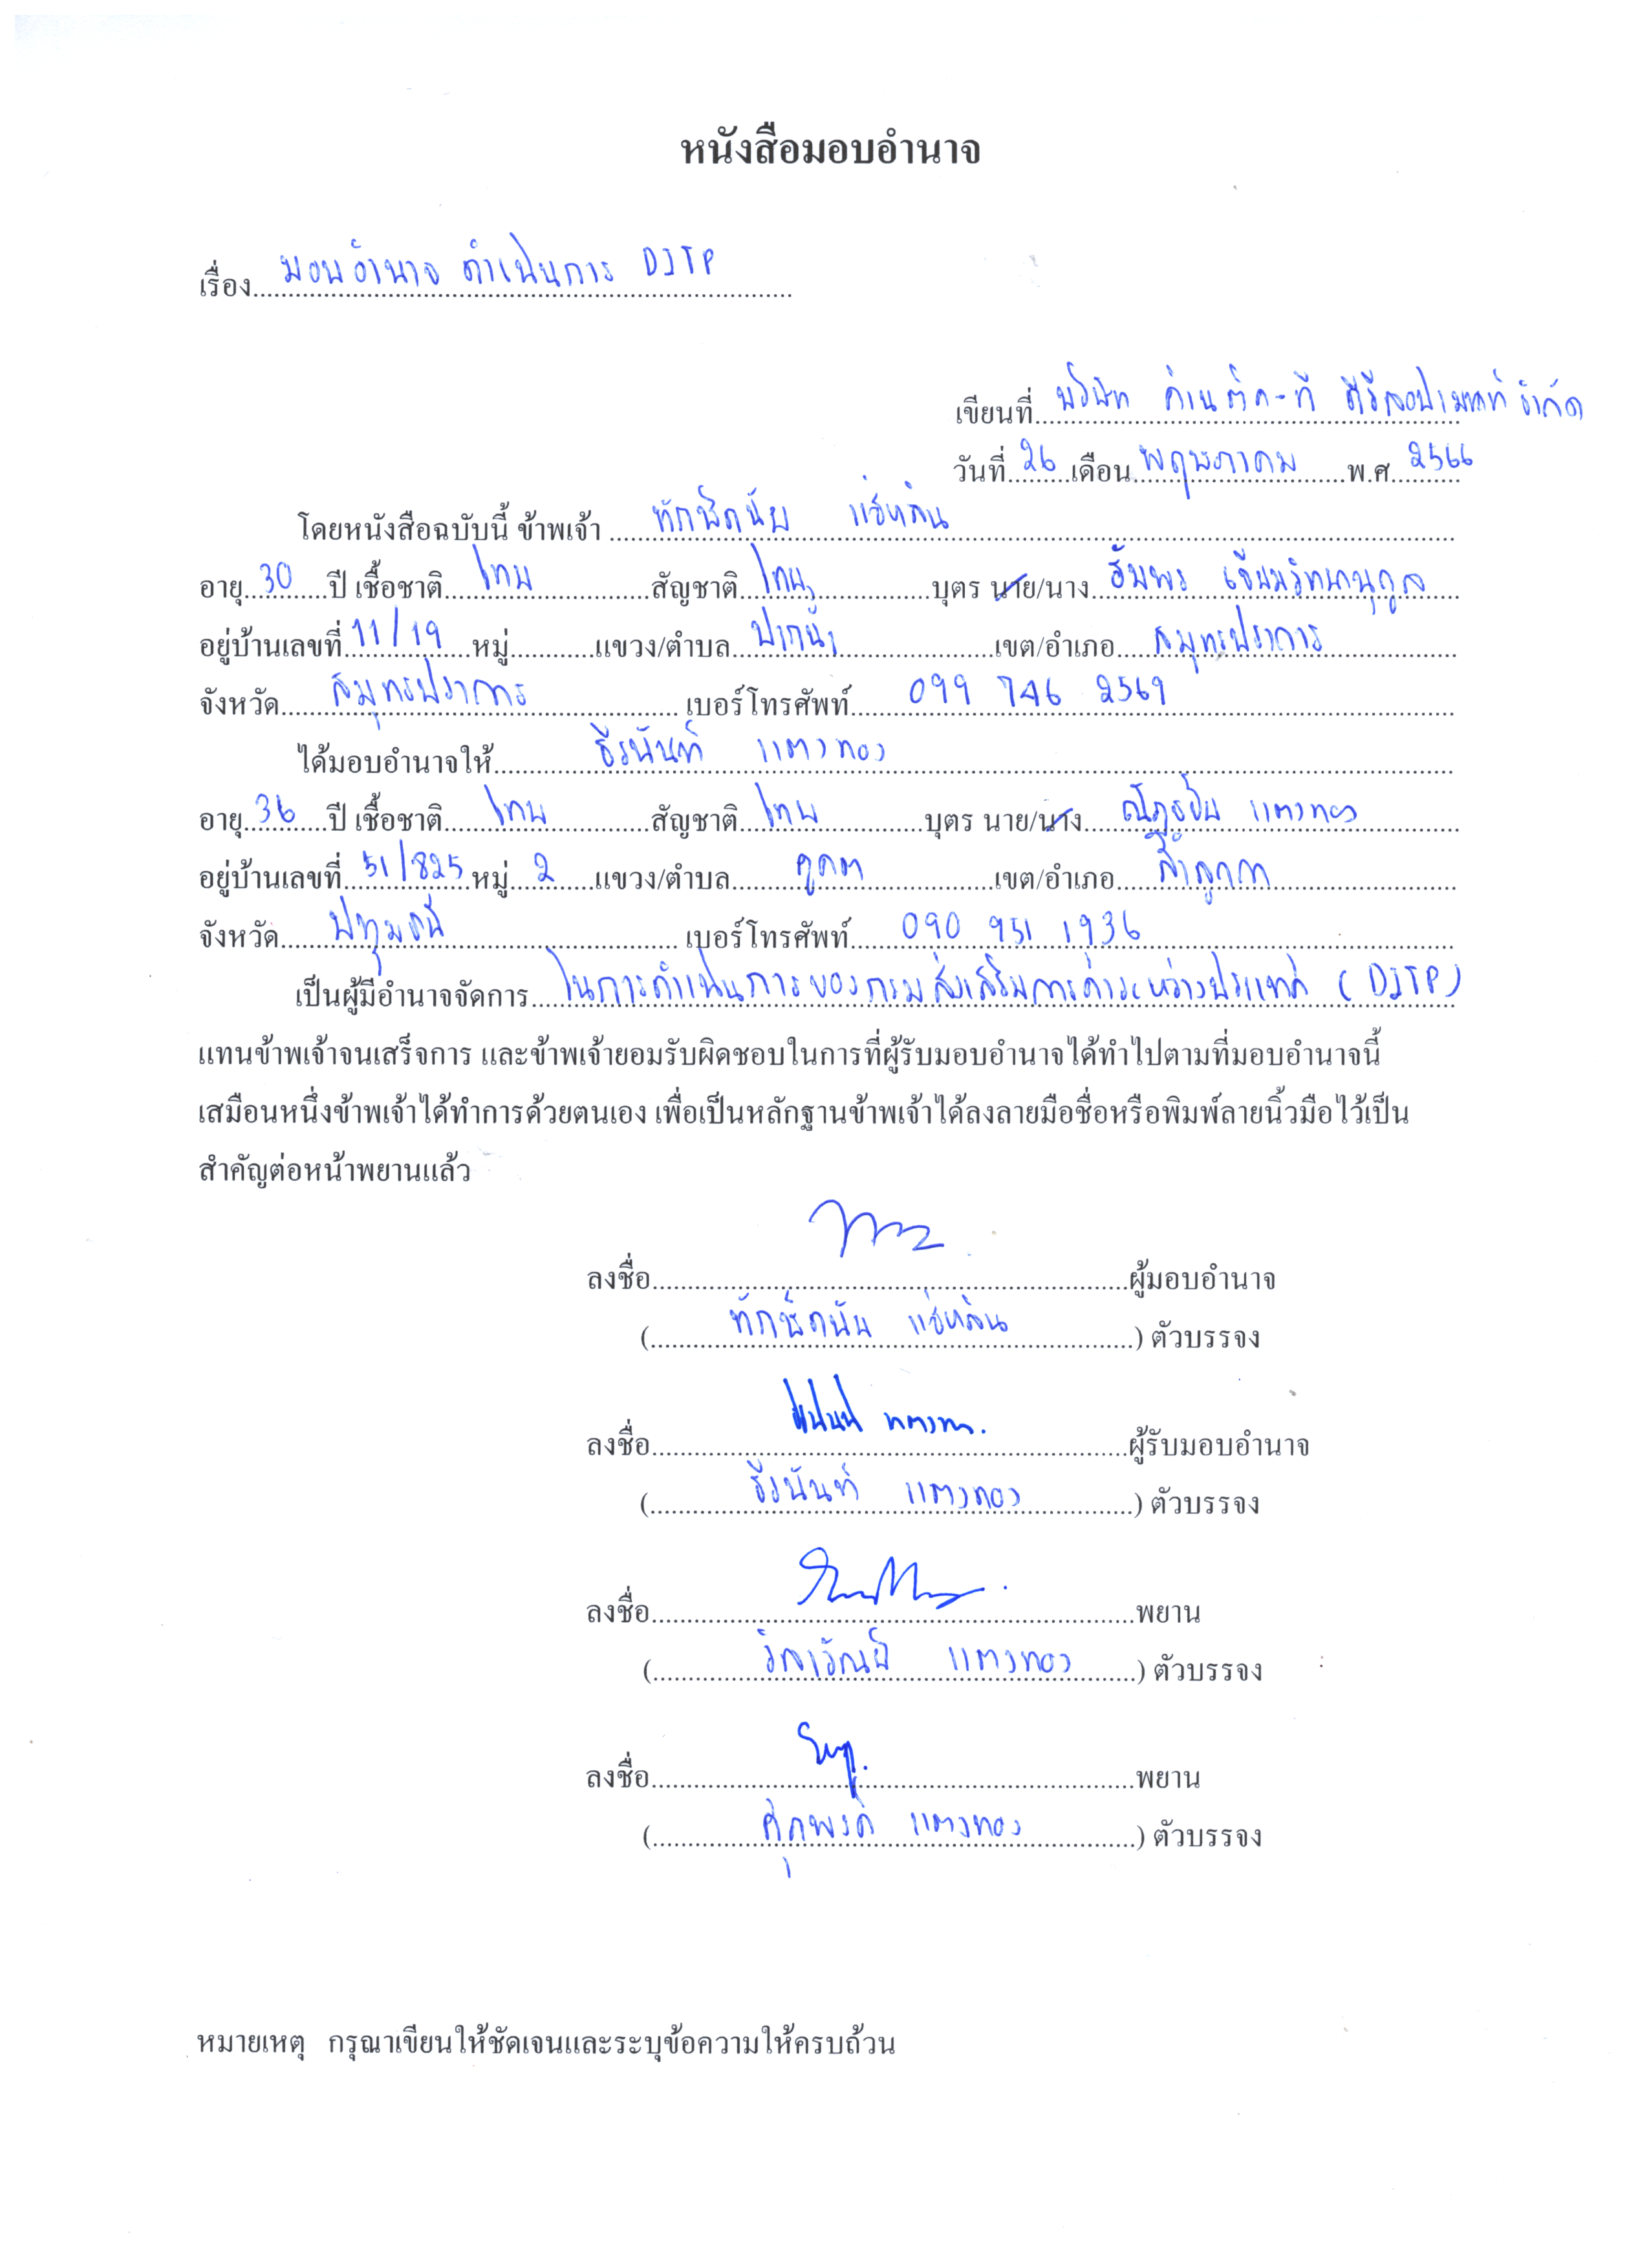 หนังสือมอบอำนาจ
เรื่อง มอบอำนาจ ดำเนินการ DITP
เขียนที่ บริษัท คำเนติค-ที ดีวีลอปเมนท์ จำกัด
วันที่ 26 เดือน พฤษภาคม พ.ศ. 2566
โดยหนังสือฉบับนี้ ข้าพเจ้า ทักษ์ดนัย แซ่หลิน
อายุ 30 ปี เชื้อชาติ ไทย สัญชาติ ไทย บุตร นาย/นาง ธัมพร
อยู่บ้านเลขที่ 11/19 หมู่ แขวง/ตำบล ปากน้ำ เขต/อำเภอ สมุทรปราการ
จังหวัด สมุทรปราการ เบอร์โทรศัพท์ 099 746 2569
ได้มอบอำนาจให้ ธีรนันท์ แตงทอง
อายุ 36 ปี เชื้อชาติ ไทย สัญชาติ ไทย บุตร นาย/นาง แตงทอง
อยู่บ้านเลขที่ 51/825 หมู่ 2 แขวง/ตำบล คูคต เขต/อำเภอ ลำลูกกา
จังหวัด ปทุมธานี เบอร์โทรศัพท์ 090 951 1936
เป็นผู้มีอำนาจจัดการ ในการดำเนินการของกรมส่งเสริมการค้าระหว่างประเทศ (DITP)
แทนข้าพเจ้าจนเสร็จการ และข้าพเจ้ายอมรับผิดชอบในการที่ผู้รับมอบอำนาจได้ทำไปตามที่มอบอำนาจนี้
เสมือนหนึ่งข้าพเจ้าได้ทำการด้วยตนเอง เพื่อเป็นหลักฐานข้าพเจ้าได้ลงลายมือชื่อหรือพิมพ์ลายนิ้วมือไว้เป็น
สำคัญต่อหน้าพยานแล้ว
ลงชื่อ ผู้มอบอำนาจ
( ทักษ์ดนัย แซ่หลิน ) ตัวบรรจง
ลงชื่อ ผู้รับมอบอำนาจ
( ธีรนันท์ แตงทอง ) ตัวบรรจง
ลงชื่อ พยาน
( วิลาวัณย์ แตงทอง ) ตัวบรรจง
ลงชื่อ พยาน
( ศุภพงศ์ แตงทอง ) ตัวบรรจง
หมายเหตุ กรุณาเขียนให้ชัดเจนและระบุข้อความให้ครบถ้วน